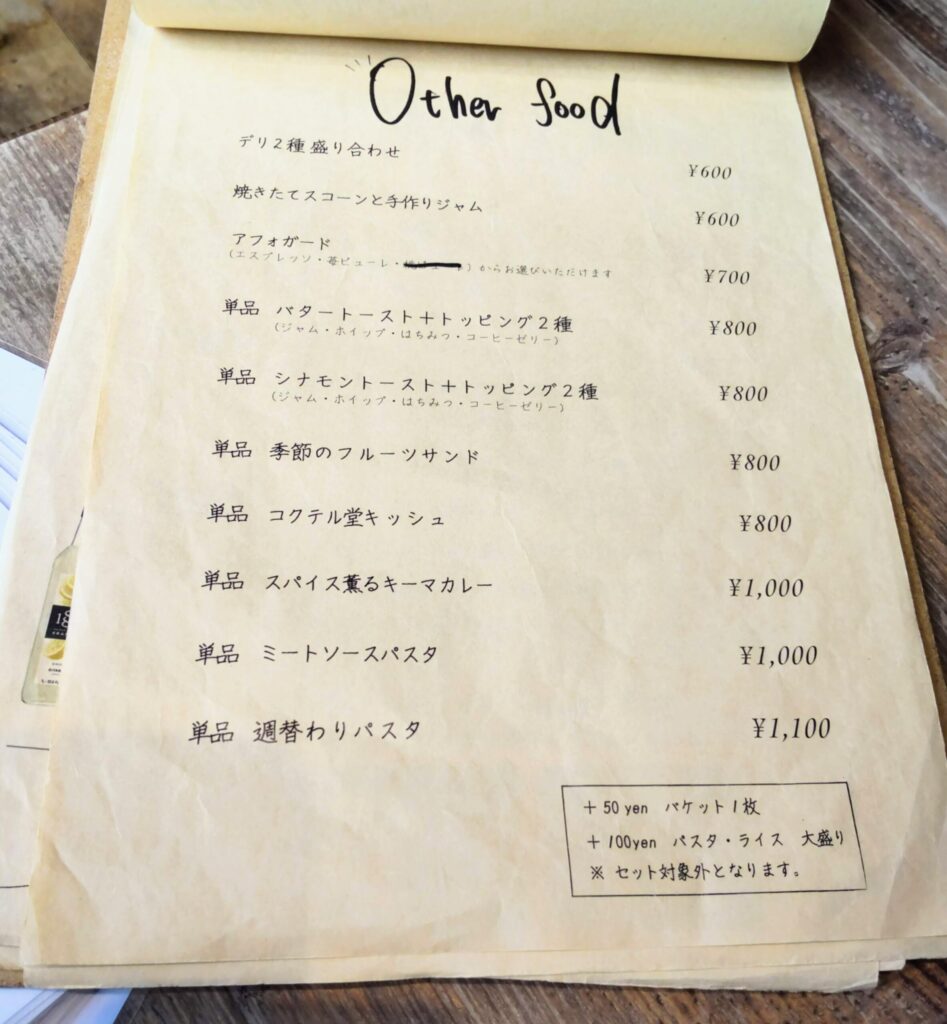 Other food
デリ2種盛り合わせ ¥600
焼きたてスコーンと手作りジャム ¥600
アフォガード ¥700
(エスプレッソ・苺ピューレ・ )からお選びいただけます
単品 バタートースト+トッピング2種 ¥800
(ジャム・ホイップ・はちみつ・コーヒーゼリー)
単品 シナモントースト+トッピング2種 ¥800
(ジャム・ホイップ・はちみつ・コーヒーゼリー)
単品 季節のフルーツサンド ¥800
単品 コクテル堂キッシュ ¥800
単品 スパイス薫るキーマカレー ¥1,000
単品 ミートソースパスタ ¥1,000
単品 週替わりパスタ ¥1,100
+50yen バケット1枚
+100yen パスタ・ライス 大盛り
※ セット対象外となります。